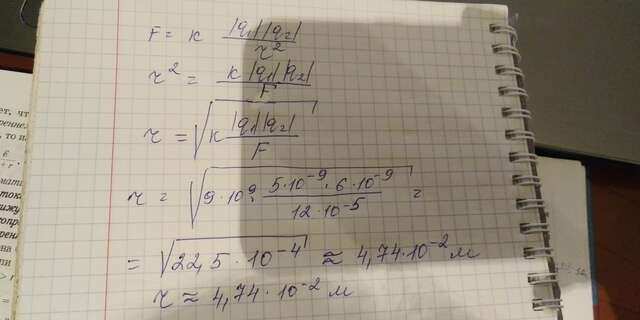 F = к |q₁||q₂| / r²
r² = к |q₁||q₂| / F
r = √(к |q₁||q₂| / F)
r = √(9·10⁹ · 5·10⁻⁹ · 6·10⁻⁹ / 12·10⁻⁵) =
= √(22,5·10⁻⁴) ≈ 4,74·10⁻² м
r ≈ 4,74·10⁻² м